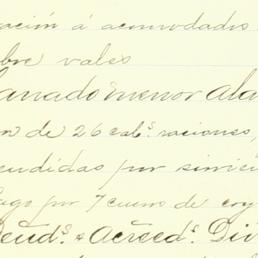 ación á acomodados
bre vales
Ganado menor Ala
n de 26 cabs. raciones,
endidas por
ago por 7 cueros de
Deuds. & Acreeds. Div